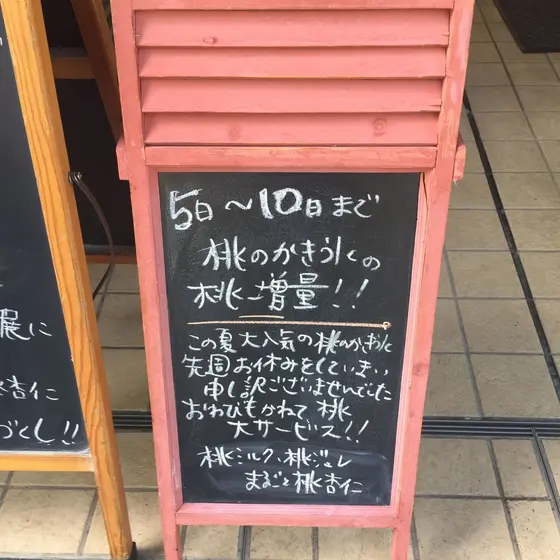 展に
杏仁
づくし!!
5日〜10日まで
桃のかき氷の
桃増量!!
この夏大人気の桃のかき氷
先週お休みをしてしまい
申し訳ございませんでした
おわびもかねて桃
大サービス!!
桃ミルク、桃ジュレ
まるごと桃杏仁